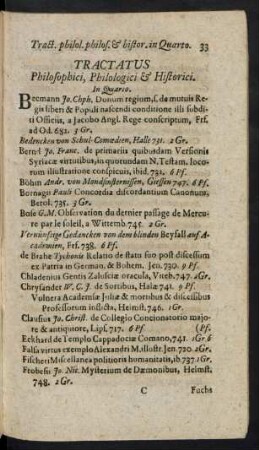 Tract. philol. philos. & histor. in Quarto. 33
TRACTATUS
Philosophici, Philologici & Historici.
In Quarto.
Becmann Jo. Chph. Donum regium, s. da mutuis Re-
gis liberi & Populi nascendi conditione illi subdi-
ti Officiis, a Jacobo Angl. Rege conscriptum, Frf.
ad Od. 682. 3 Gr.
Bedencken von Schul-Comœdien, Halle 731. 2 Gr.
Bernd Jo. Franc. de primariis quibusdam Versionis
Syriacæ virtutibus, in quorundam N. Testam. loco-
rum illustratione conspicuis, ibid. 732. 6 Pf.
Böhm Andr. von Mondfinsternissen, Giessen 747. 6 Pf.
Bornagii Pauli Concordia discordantium Canonum,
Berol. 735. 3 Gr.
Bose G. M. Observation du dernier passage de Mercu-
re par le soleil, a Wittemb. 745. 2 Gr.
Vernünftige Gedancken von dem blinden Beyfall auf A-
cademien, Frf. 738. 6 Pf.
de Brahe Tychonis Relatio de statu suo post discessum
ex Patria in German. & Bohem. Jen. 730. 9 Pf.
Chladenius Gentis Zalusciæ oracula, Viteb. 747. 2 Gr.
Chrysander W. C. J. de Sortibus, Halæ 741. 9 Pf.
Vulnera Academiæ Juliæ & mortibus & discessibus
Professorum inflicta, Heimst. 746. 1 Gr.
Clausius Jo. Christ. de Collegio Concionatorio majo-
re & antiquiore, Lips. 717. 6 Pf. (Pf.
Eckhard de Templo Cappadociæ Comano, 741. 1 Gr. 6
Falsa virtus exemplo Alexandri M. illostr. Jen. 720. 2 Gr.
Fischeri Miscellanea politioris humanitatis, ib. 737. 1 Gr.
Frobesii Jo. Nic. Mysterium de Dæmonibus, Heimst.
748. 2 Gr.
C Fuchs